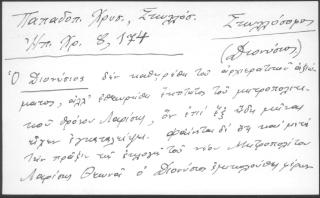 Παπαδοπ. Χρυσ., Σκυλλόσ.
Ἠπ. Χρ. 8, 174
Σκυλλόσοφος
(Διονύσιος)
Ὁ Διονύσιος δὲν καθῃρέθη τοῦ ἀρχιερατικοῦ ἀξιώ-
ματος, ἀλλ' ἐθεωρήθη ἔκπτωτος τοῦ μητροπολιτι-
κοῦ θρόνου Λαρίσης, ὃν ἐπὶ ἓξ ἤδη μῆνας
εἶχεν ἐγκαταλείψει. φαίνεται δὲ ὅτι καὶ μετὰ
τὴν πρᾶξιν τῆς ἐκλογῆς τοῦ νέου Μητροπολίτου
Λαρίσης Θεωνᾶ ὁ Διονύσιος ἐξηκολούθει φέρων